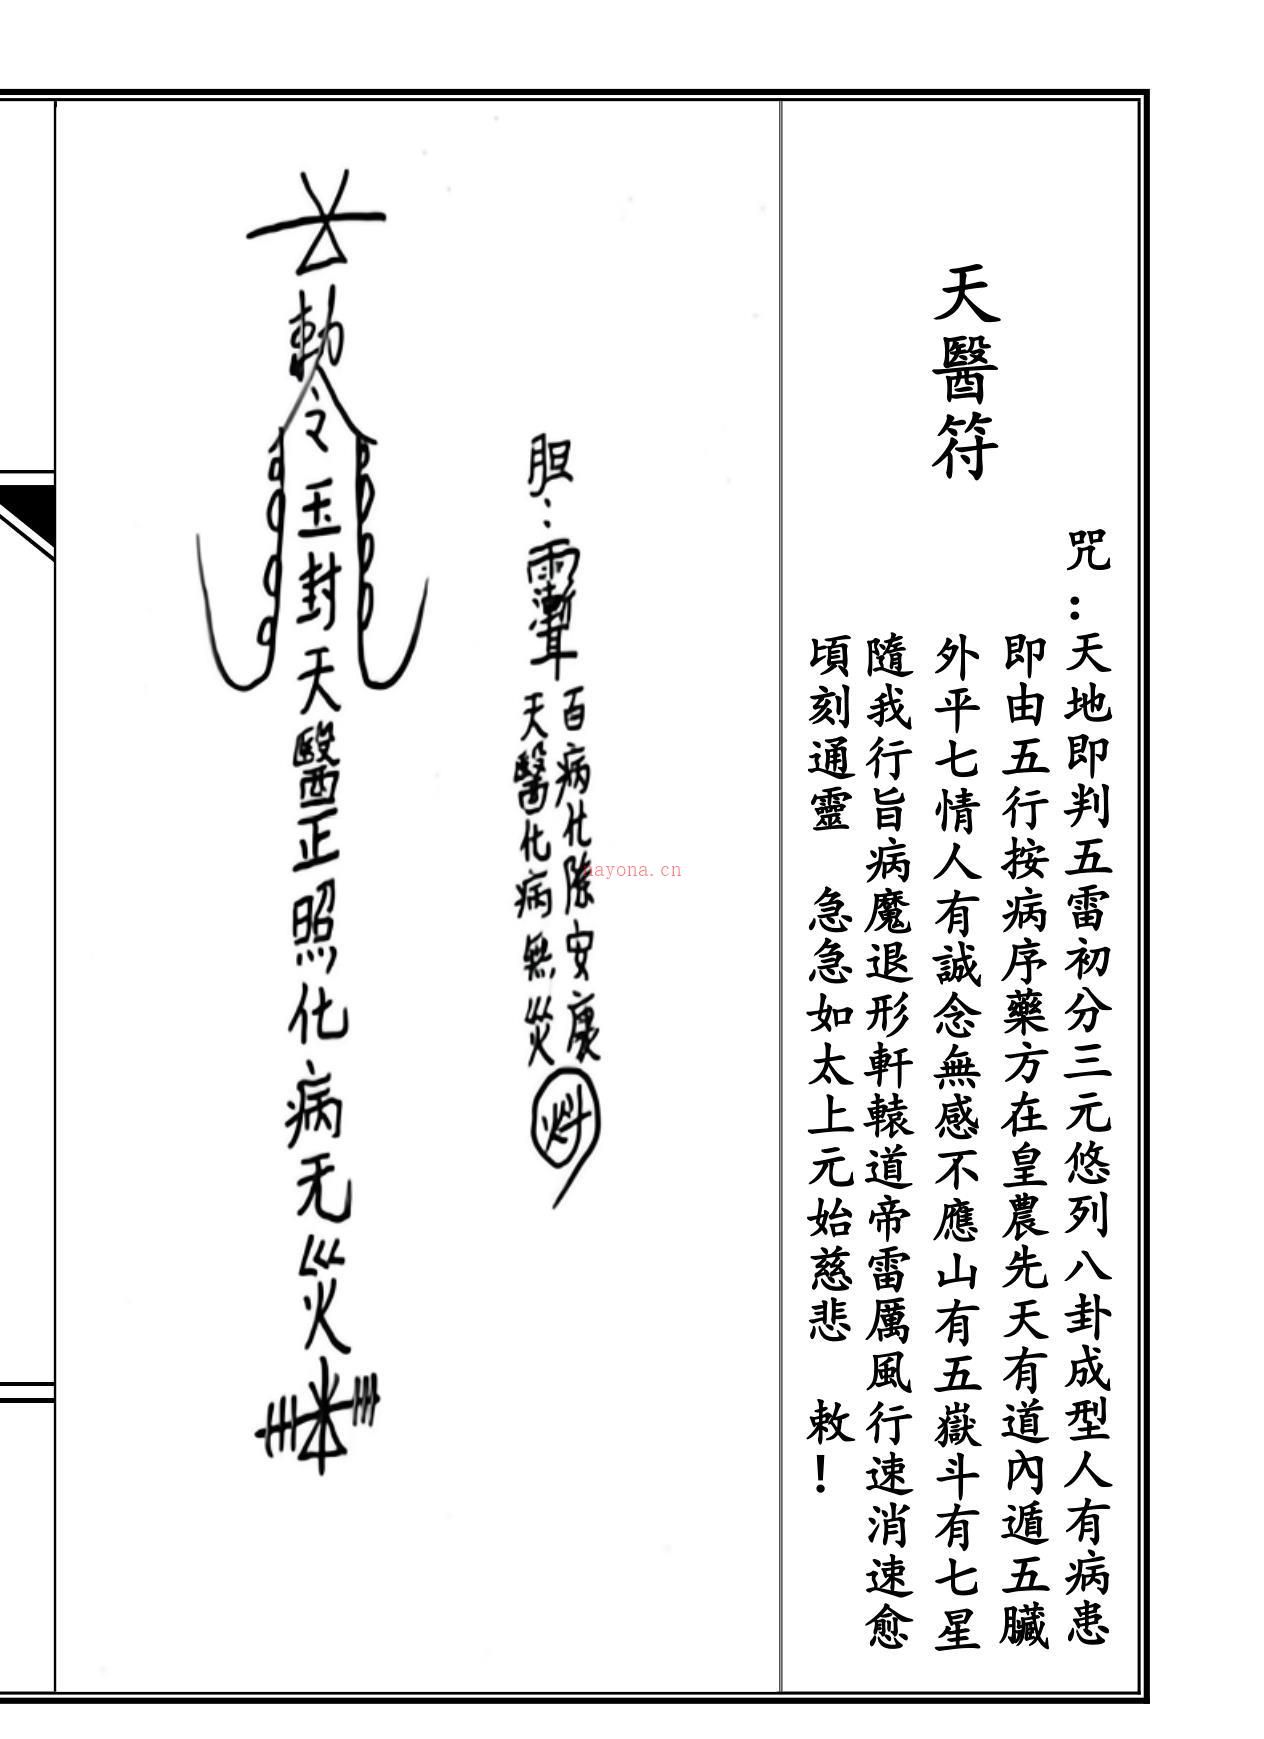 天醫符
咒：天地即判五雷初分三元悠列八卦成型人有病患
即由五行按病序藥方在皇農先天有道內遁五臟
外平七情人有誠念無感不應山有五嶽斗有七星
隨我行旨病魔退形軒轅道帝雷厲風行速消速愈
頃刻通靈　急急如太上元始慈悲　敕！
胆：
百病化除安康
天醫化病無災
勅令玉封天醫正照化病无災
nayona.cn